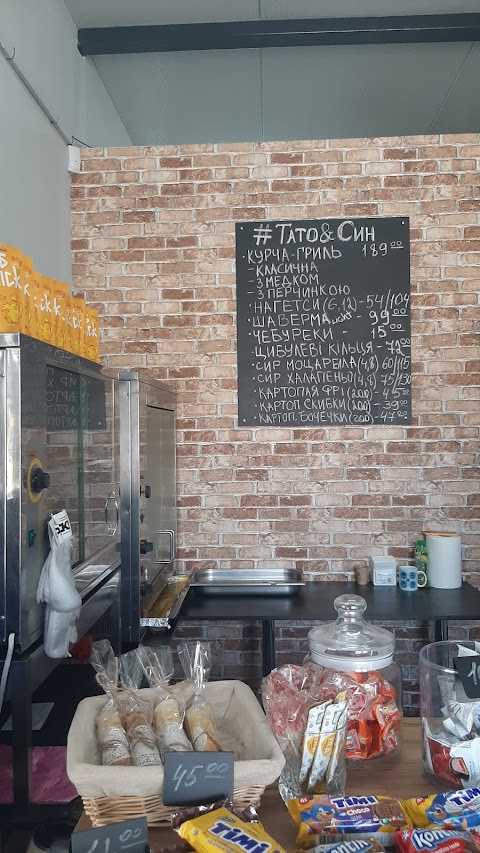 # ТАТО&СИН
·КУРЧА-ГРИЛЬ 189.00
-КЛАСИЧНА
-З МЕДКОМ
-З ПЕРЧИНКОЮ
·НАГЕТСИ (6,12)-54/104
·ШАВЕРМА - 99.00
·ЧЕБУРЕКИ - 15.00
·ЦИБУЛЕВІ КІЛЬЦЯ-
·СИР МОЦАРЕЛА(4,8) 60/115
·СИР ХАЛАПЕНЬЙ(4,8) 75/130
·КАРТОПЛЯ ФРІ (200) - 45.00
·КАРТОП. СКИБКИ (200)-39.00
·КАРТОП. БОЧЕЧКИ(200)-47.00
45.00
11.00
TIMI
Choco
TIMI
TIMI
Kontiki